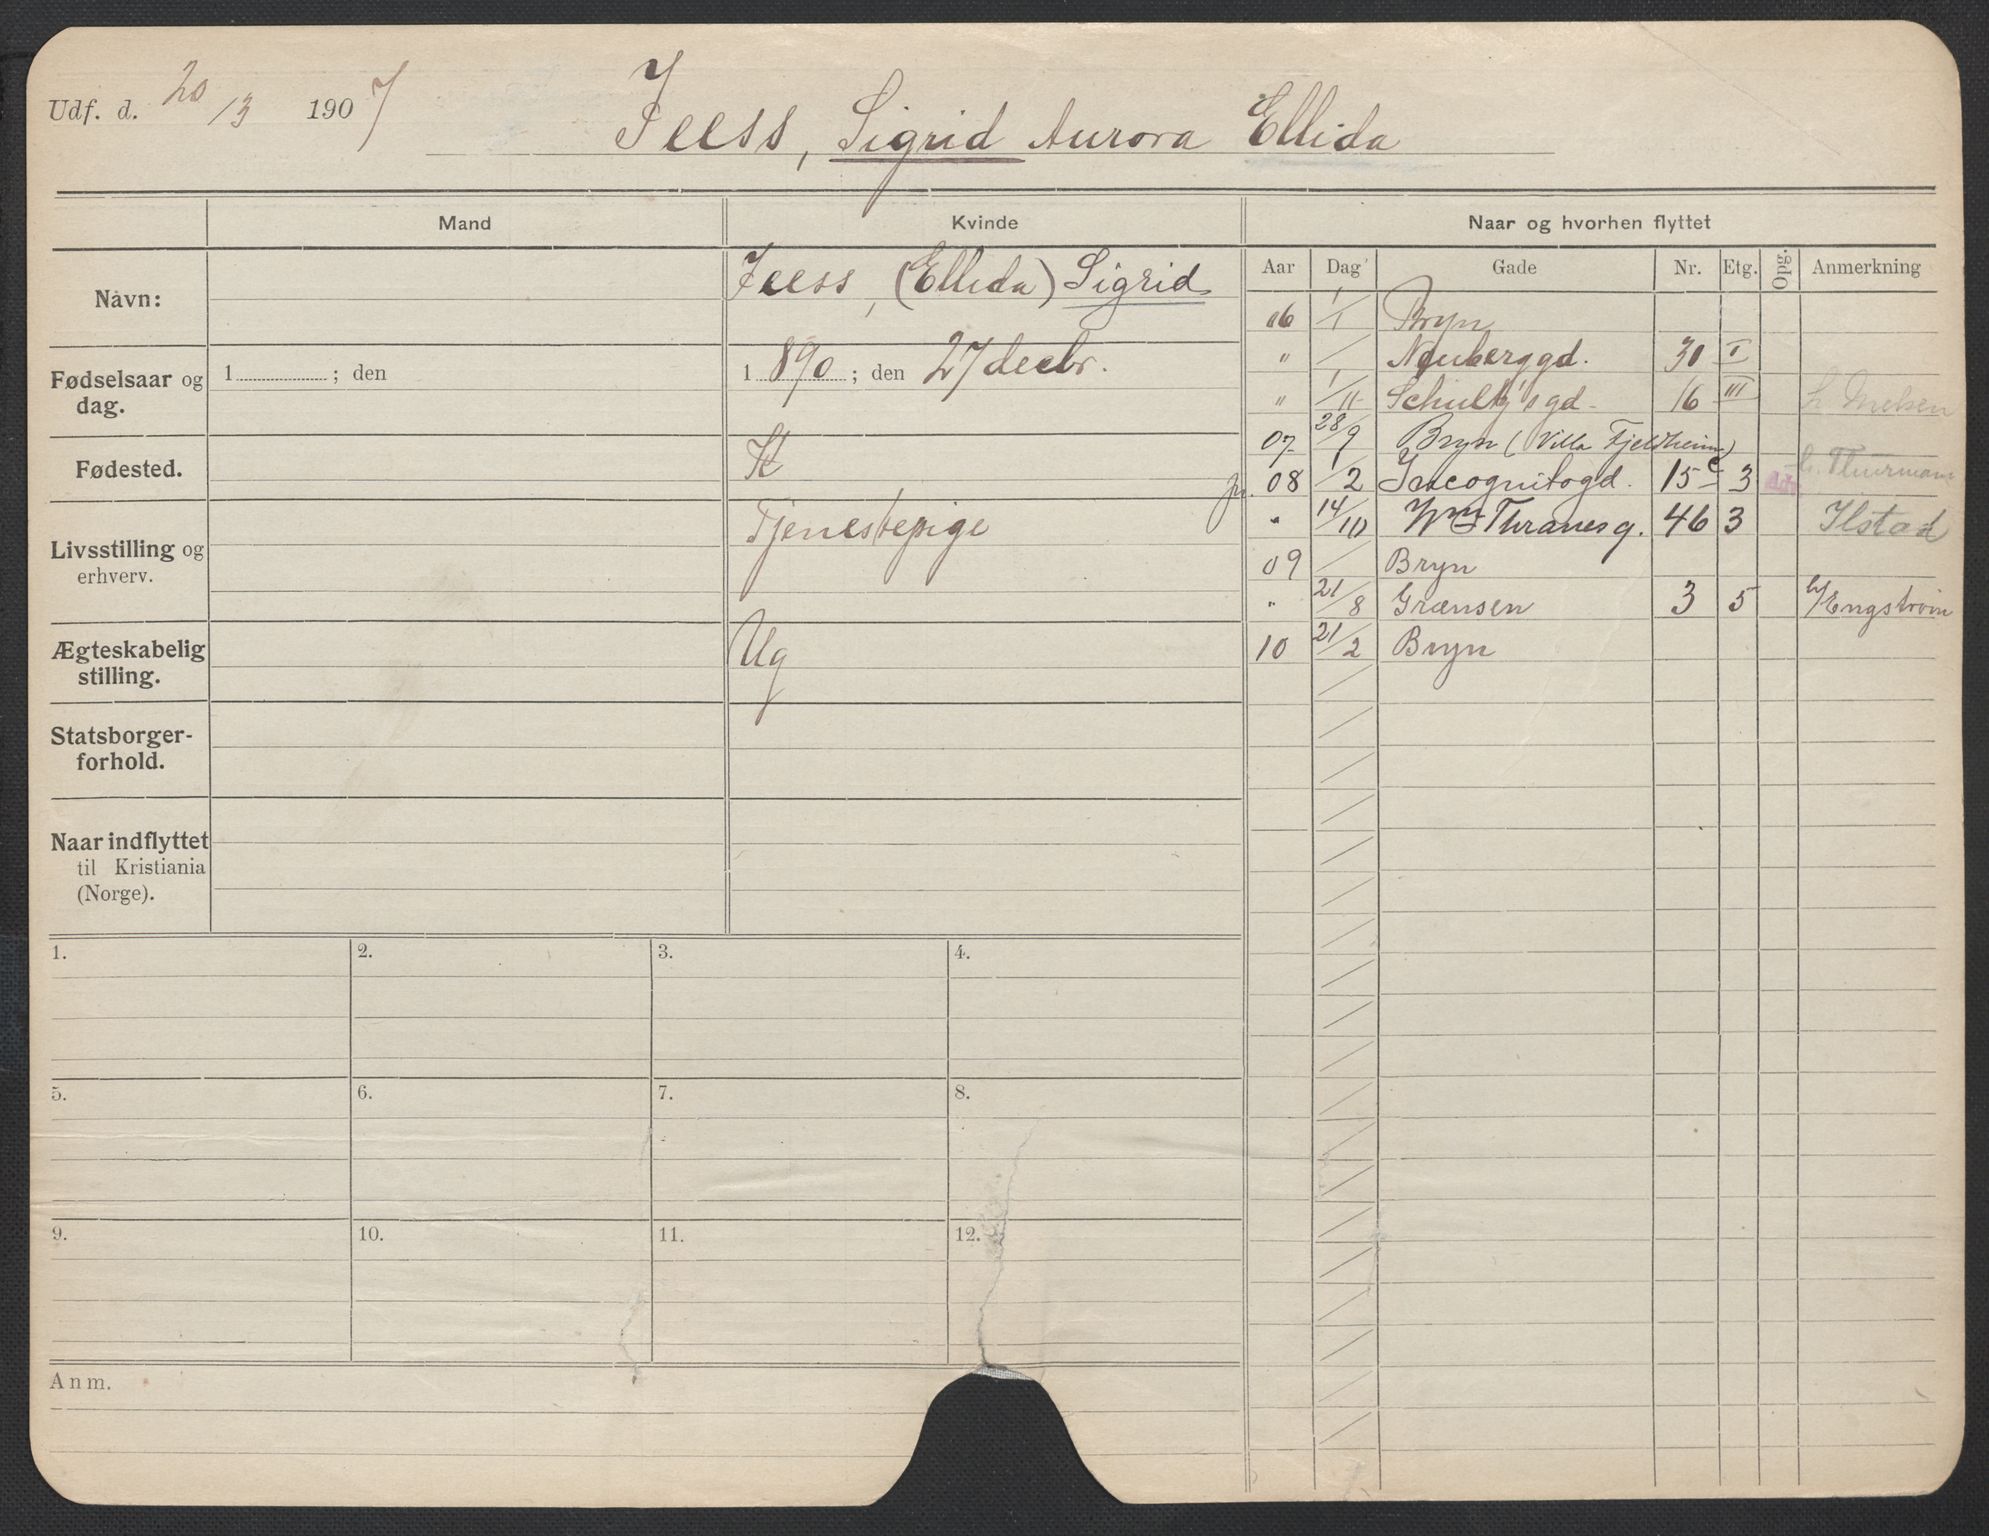 Udf. d. 20/3 1907 Feess, Sigrid Aurora Ellida
Mand Kvinde Naar og hvorhen flyttet
Aar Dag Gade Nr. Etg. Opg. Anmerkning
Navn: Feess, (Ellida) Sigrid
Fødselsaar og dag. 1 ; den 1 890 ; den 27 decbr.
Fødested. K
Livsstilling og erhverv. Tjenestepige
Ægteskabelig stilling. Ug
Statsborger-
forhold.
Naar indflyttet
til Kristiania
(Norge).
06 1/1 Bryn
" / Neuberggd. 30 I
" 1/11 Schultz's gd. 16 III h. Nielsen
07 28/9 Bryn (Villa Fjeldheim)
08 1/2 Incognitogd. 15c 3 h. Thurmann
" 14/10 Wm Thranesg. 46 3 Ilstad
09 / Bryn
" 21/8 Grænsen 3 5 h/Engstrøm
10 21/2 Bryn
1. 2. 3. 4.
5. 6. 7. 8.
9. 10. 11. 12.
Anm.